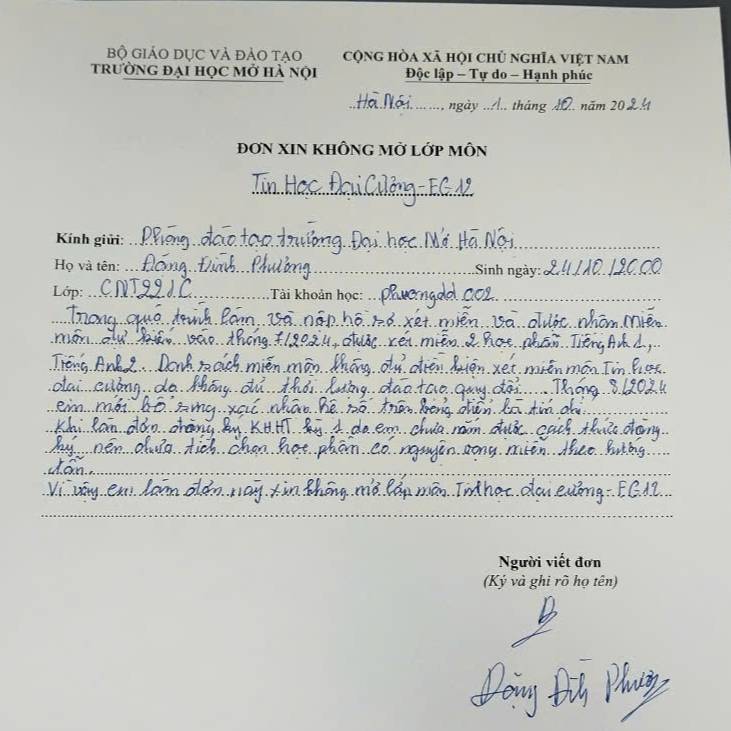 BỘ GIÁO DỤC VÀ ĐÀO TẠO
TRƯỜNG ĐẠI HỌC MỞ HÀ NỘI
CỘNG HÒA XÃ HỘI CHỦ NGHĨA VIỆT NAM
Độc lập – Tự do – Hạnh phúc
Hà Nội......, ngày ..1.. tháng 10 năm 2024
ĐƠN XIN KHÔNG MỞ LỚP MÔN
Tin Học Đại Cương - EG12
Kính gửi: Phòng đào tạo trường Đại học Mở Hà Nội
Họ và tên: Đặng Đình Phương Sinh ngày: 24/10/2000
Lớp: CNT221C Tài khoản học: phuongdd002
Trong quá trình làm và nộp hồ sơ xét miễn và được nhận miễn
môn dự kiến vào tháng 7/2024, được xét miễn 2 học phần Tiếng Anh 1,
Tiếng Anh 2. Danh sách miễn môn không đủ điều kiện xét miễn môn Tin học
đại cương do không đủ thời lượng đào tạo quy đổi. Tháng 8/2024
em mới bổ sung xác nhận hệ số trên bảng điểm là tín chỉ
Khi làm đơn đăng ký KHHT kỳ 1 do em chưa nắm được cách thức đăng
ký nên chưa tích chọn học phần có nguyện vọng miễn theo hướng
dẫn.
Vì vậy em làm đơn này xin không mở lớp môn Tin học đại cương - EG12
Người viết đơn
(Ký và ghi rõ họ tên)
Đặng Đình Phương